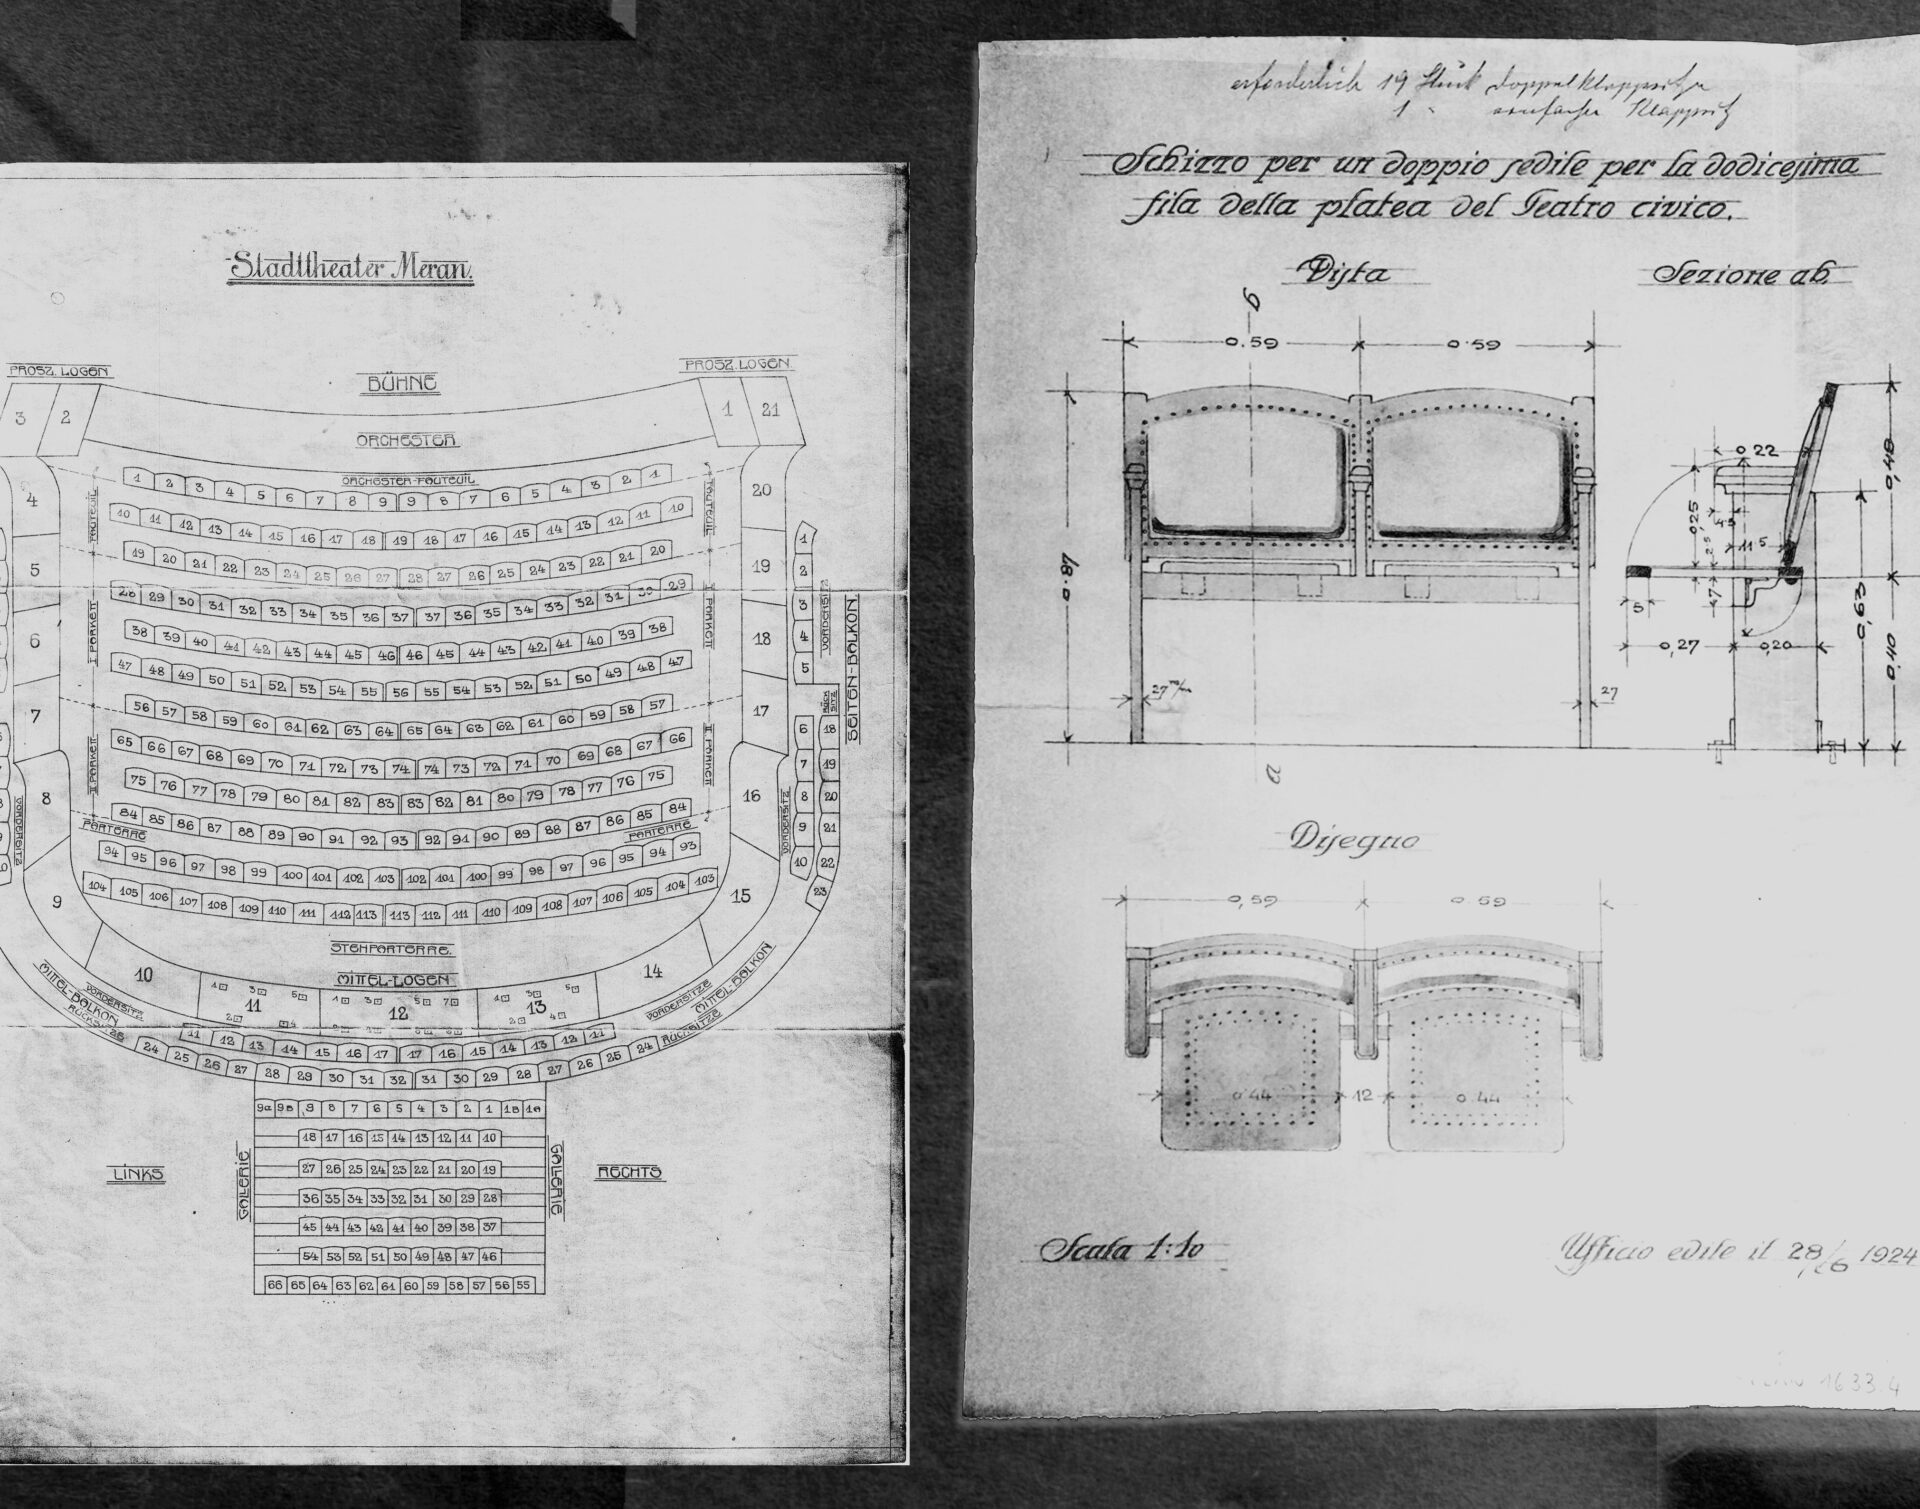 Stadttheater Meran.
PROSZ. LOGEN
BÜHNE
PROSZ. LOGEN
3 2
1 21
ORCHESTER
ORCHESTER-FAUTEUIL
FAUTEUIL
FAUTEUIL
4
20
1 2 3 4 5 6 7 8 9 9 8 7 6 5 4 3 2 1
10 11 12 13 14 15 16 17 18 19 18 17 16 15 14 13 12 11 10
19 20 21 22 23 24 25 26 27 28 27 26 25 24 23 22 21 20
5
19
I PARKETT
I PARKETT
28 29 30 31 32 33 34 35 36 37 37 36 35 34 33 32 31 30 29
38 39 40 41 42 43 44 45 46 46 45 44 43 42 41 40 39 38
6
18
47 48 49 50 51 52 53 54 55 56 55 54 53 52 51 50 49 48 47
56 57 58 59 60 61 62 63 64 65 64 63 62 61 60 59 58 57
7
17
II PARKETT
II PARKETT
65 66 67 68 69 70 71 72 73 74 74 73 72 71 70 69 68 67 66
75 76 77 78 79 80 81 82 83 83 82 81 80 79 78 77 76 75
8
16
84 85 86 87 88 89 90 91 92 93 92 91 90 89 88 87 86 85 84
PARTERRE
PARTERRE
94 95 96 97 98 99 100 101 102 103 102 101 100 99 98 97 96 95 94 93
104 105 106 107 108 109 110 111 112 113 113 112 111 110 109 108 107 106 105 104 103
9
15
STEHPARTERRE.
MITTEL-LOGEN
10
14
1 3 5
11
2 4
1 3 5 7
12
1 3 5
13
2 4
1
2
3
4
5
VORDERSITZ
SEITEN-BALKON
RÜCK
SITZ
6 18
7 19
8 20
9 21
10 22
23
VORDERSITZ
VORDERSITZ
MITTEL-BALKON
VORDERSITZ
RÜCKSITZE
VORDERSITZE
MITTEL-BALKON
RÜCKSITZE
11 12 13 14 15 16 17 17 16 15 14 13 12 11
24 25 26 27 28 29 30 31 32 31 30 29 28 27 26 25 24
9A 9B 9 8 7 6 5 4 3 2 1 1B 1A
18 17 16 15 14 13 12 11 10
27 26 25 24 23 22 21 20 19
36 35 34 33 32 31 30 29 28
45 44 43 42 41 40 39 38 37
54 53 52 51 50 49 48 47 46
66 65 64 63 62 61 60 59 58 57 56 55
LINKS
GALLERIE
GALLERIE
RECHTS
erforderlich 19 Stück Doppelklappsitze
1 " einfacher Klappsitz
Schizzo per un doppio sedile per la dodicesima
fila della platea del Teatro civico.
Vista
Sezione ab.
0.59 0.59
0.87
27 m/m
27
0,22
0,48
0,25
11 5
5
0,27 0,20
0,63
0,40
Disegno
0,59 0.59
0.44 12 0.44
Scala 1:10
Ufficio edile il 28/6 1924
1633.4